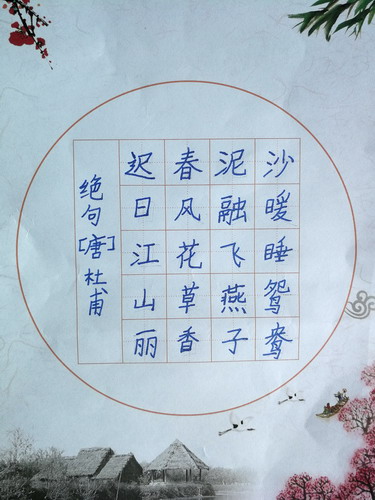 绝句[唐]杜甫
迟日江山丽
春风花草香
泥融飞燕子
沙暖睡鸳鸯